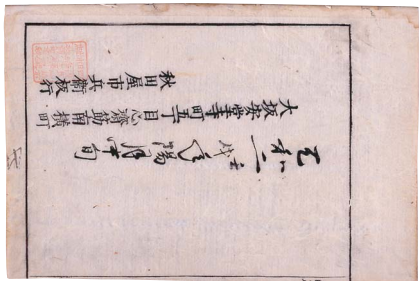 天和二壬戌年陽月中旬
大坂安堂寺町五丁目心齋筋南横町
秋田屋市兵衛板行